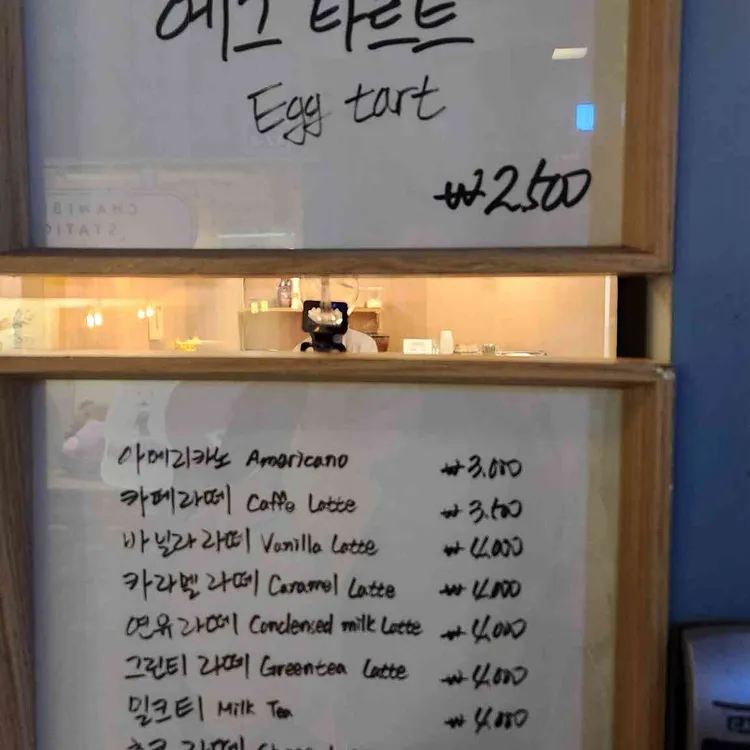 에그 타르트
Egg tart
₩2,500
아메리카노 Americano ₩3.000
카페라떼 Caffe Latte ₩3.500
바닐라 라떼 Vanilla Latte ₩4.000
카라멜 라떼 Caramel Latte ₩4.000
연유 라떼 Condensed milk Latte ₩4.000
그린티 라떼 Greentea Latte ₩4.000
밀크티 Milk Tea ₩4.000